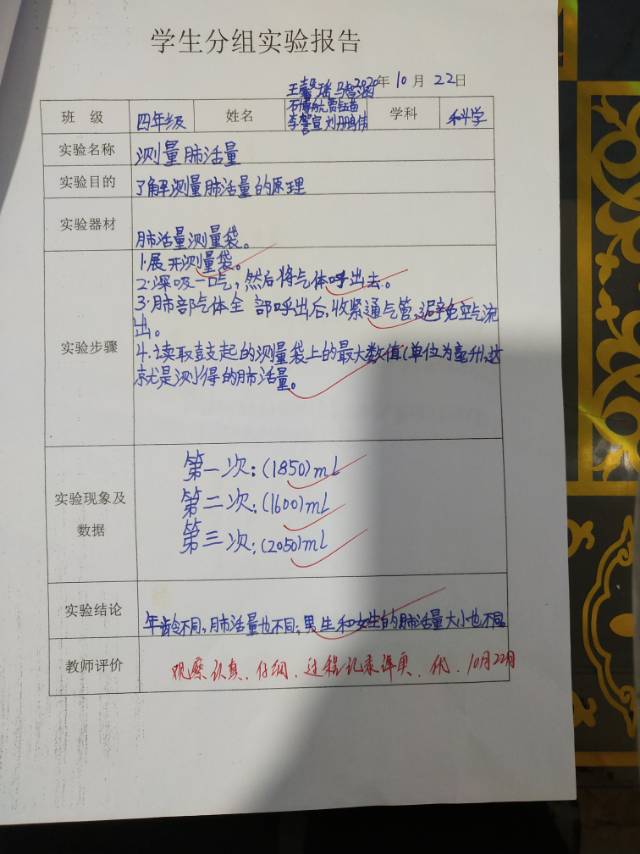 学生分组实验报告
2020年10月22日
班 级 四年级 姓名 学科 科学
实验名称 测量肺活量
实验目的 了解测量肺活量的原理
实验器材 肺活量测量袋。
实验步骤
1.展开测量袋。
2.深吸一口气,然后将气体呼出去。
3.肺部气体全 部呼出后,收紧通气管,避免空气流
出。
4.读取鼓起的测量袋上的最大数值(单位为毫升),这
就是测得的肺活量。
实验现象及
数据
第一次:(1850)mL
第二次:(1600)mL
第三次:(2050)mL
实验结论 年龄不同,肺活量也不同;男生和女生的肺活量大小也不同
教师评价 观察认真、仔细,过程记录详实. 优. 10月22日